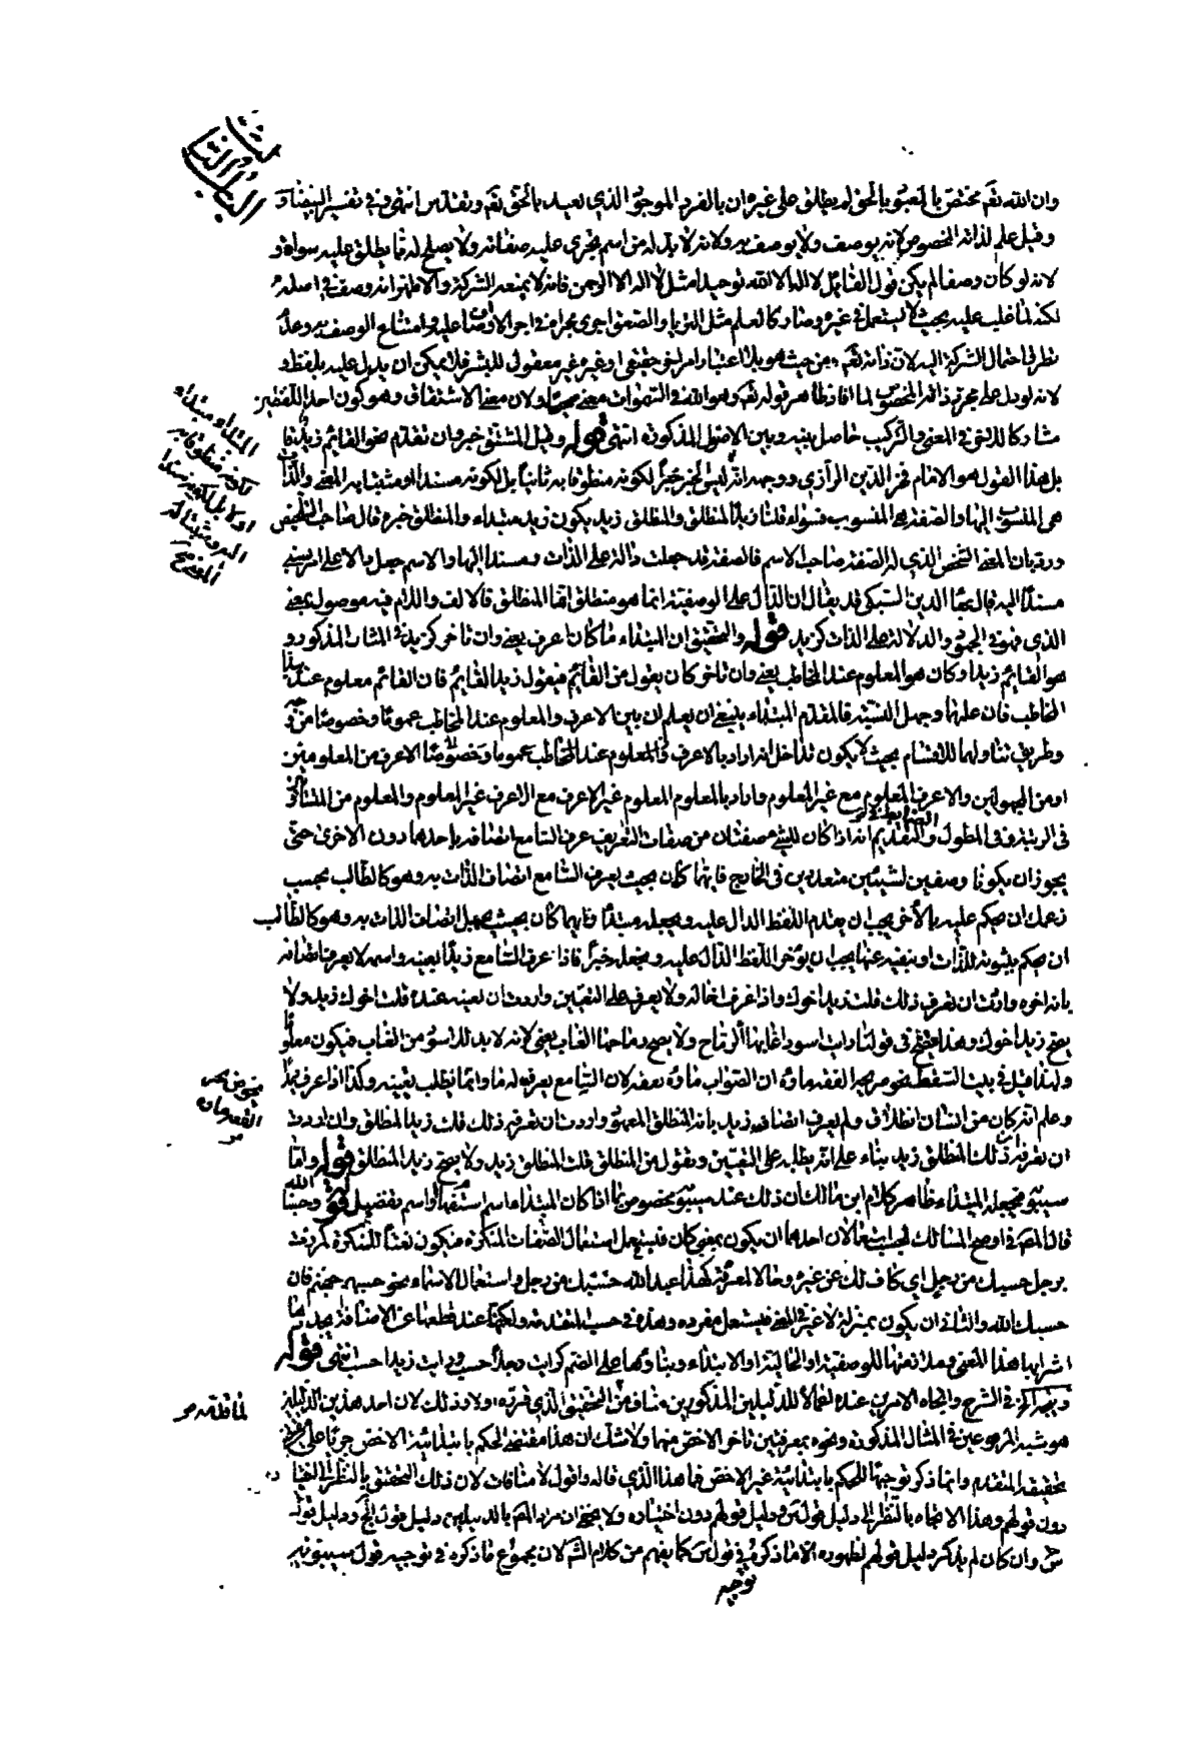 الباب الثالث
وان الله تعم مختص بالمعبود بالحق لم يطلق على غيره ان بالفرد الموجود الذي يعبد بالحق تعم وتقدس انتهى وفي تفسير البيضاو
وقيل علم لذاته المخصوص لانه يوصف ولا يوصف به ولانه لا بد له من اسم تجري عليه صفاته ولا يصلح له مما يطلق عليه سواه و
لانه لو كان وصفا لم يكن قول القائل لا اله الا الله توحيدا مثل لا اله الا الرحمن فانه لا يمنع الشركة والاظهر انه وصف في اصله
لكنه لما غلب عليه بحيث لا يستعمل في غيره وصار كالعلم مثل الثريا والصعق اجري مجراه في اجراء الاوصاف عليه وامتناع الوصف به وعدم
تطرق احتمال الشركة اليه لان ذاته تعم من حيث هو بلا اعتبار امر اخر حقيقي او غيره غير معقول للبشر فلا يمكن ان يدل عليه بلفظ و
لانه لو دل على مجرد ذاته المخصوص لما افاد ظاهر قوله تعم وهو الله في السموات معنى صحيحا ولان معنى الاشتقاق وهو كون احد اللفظين
مشاركا للاخر في المعنى والتركيب حاصل بينه وبين الاصول المذكورة انتهى قوله وقيل المشتق خبر وان تقدم نحو القائم زيد قا
بل هذا القول هو الامام فخر الدين الرازي ووجهه انه ليس الخبر خبرا لكونه منطوقا به ثانيا بل لكونه مسندا او مثبتا به المعنى والذات
هي المنسوب اليها والصفة هي المنسوب فسواء قلنا زيد المنطلق والمنطلق زيد يكون زيد مبتداء والمنطلق خبره قال صاحب التلخيص
ورد بان المعنى الشخص الذي له الصفة صاحب الاسم فالصفة قد جعلت دالة على الذات ومسندا اليها والاسم جعل دالا على امر نسبي
مسندا اليه قال بهاء الدين السبكي قد يقال ان الدال على الوصفية انما هو منطلق اما المنطلق فالالف واللام فيه موصول بمعنى
الذي فهو في الجمود والدلالة على الذات كزيد قوله والتحقيق ان المبتداء ما كان اعرف يعني وان تاخر كزيد في المثال المذكور و
هو القائم زيد او كان هو المعلوم عند المخاطب يعني وان تاخر كان يقول من القائم فيقول زيد القائم فان القائم معلوم عند
المخاطب فان علمها وجهل النسبة فالمقدم المبتداء ينبغي ان يعلم ان بين الاعرف والمعلوم عند المخاطب عموما وخصوصا من وجه
وطريق تناولهما للاقسام بحيث لا يكون تداخل انه اراد بالاعرف في المعلوم عند المخاطب عموما وخصوصا الاعرف من المعلومين
او من المجهولين والاعرف المعلوم مع غير المعلوم واراد بالمعلوم المعلوم غير الاعرف مع الاعرف غير المعلوم والمعلوم من المتساويين
في الرتبة وفي المطول الضابط في التقديم انه اذا كان للشيء صفتان من صفات التعريف عرف السامع اتصافه باحدهما دون الاخرى حتى
يجوز ان يكونا وصفين لشيئين متعددين في الخارج فايهما كان بحيث يعرف السامع اتصاف الذات به وهو كالطالب بحسب
زعمك ان تحكم عليه بالاخر يجب ان يقدم اللفظ الدال عليه ويجعله مبتدا وايهما كان بحيث يجهل اتصاف الذات به وهو كالطالب
ان تحكم بثبوته للذات او بنفيه عنها يجب ان يؤخر اللفظ الدال عليه وتجعله خبرا فاذا عرف السامع زيدا بعينه واسمه لا يعرف اتصافه
بانه اخوه واردت ان تعرف ذلك قلت زيد اخوك واذا عرف اخا له ولا يعرف على التعيين واردت ان تعينه عنده قلت اخوك زيد ولا
يصح زيد اخوك وهذا يتضح في قولنا رايت اسودا غابها الرماح ولا يصح رماحها الغاب يعني لانه لا بد للاسود من الغاب فيكون معلوما
ولهذا قيل في بيت السقط يخوض بحرا نقعه ماؤه ان الصواب ماؤه نقعه لان السامع يعرف له ماء وانما يطلب تعيينه وكذا اذا عرف زيدا
وعلم انه كان من انسان انطلاق ولم يعرف اتصاف زيد بانه المنطلق المعهود واردت ان تعرفه ذلك قلت زيد المنطلق وان اردت
ان تعرفه ان ذلك المنطلق زيد بناء على انه يطلبه على التعيين ويقول من المنطلق قلت المنطلق زيد ولا يصح زيد المنطلق قوله واما
سيبويه فيجعله المبتداء ظاهر كلام ابن مالك ان ذلك عند سيبويه مخصوص بما اذا كان المبتداء اسم استفهام او اسم تفضيل قوله وحسبنا الله
قال المص في اوضح المسالك لحسب استعمالان احدهما ان يكون بمعنى كاف فيستعمل استعمال الصفات النكرة فتكون نعتا للنكرة كمررت
برجل حسبك من رجل اي كاف لك عن غيره وحالا لمعرفة كهذا عبد الله حسبك من رجل واستعمال الاسماء نحو حسبهم جهنم فان
حسبك الله والثاني ان يكون بمنزلة لا غير في المعنى فيستعمل مفردة وهذه في حسب المتقدمة ولكنها عند قطعها عن الاضافة تجدد لها
اشرابها هذا المعنى وملازمتها للوصفية او الحالية او الابتداء وبناؤها على الضم كرايت رجلا حسب ورايت زيدا حسب انتهى قوله
ويتجه الخ في الشرح واتجاه الامرين عنده اعمالا للدليلين المذكورين مناف للتحقيق الذي قرره اولا وذلك لان احد هذين الدليلين
هو شبه المرجوعين في المثال المذكور ونحوه بمعرفتين تاخر الاخص منهما ولا شك ان هذا مقتضى الحكم بابتدائية الاخص جريا على
تحقيقه المتقدم وانما ذكر توجيها للحكم بابتدائية غير الاخص فما هذا الذي قاله واقول لا منافات لان ذلك التحقيق بالنظر الى اختيا
دون قولهم وهذا الاتجاه بالنظر الى دليل قول س ودليل قولهم دون اختياره ولا يخفى ان مراد المص بالدليلين دليل قول الجمهور ودليل قول
س وان كان لم يذكر دليل قولهم لظهوره الا ما ذكره في قول س كما يفهم من كلام الشم لان مجموع ما ذكره في توجيه قول سيبويه
توجيه
اولا بل لكونه مسندا
يخوض بحر
النقع ماؤه